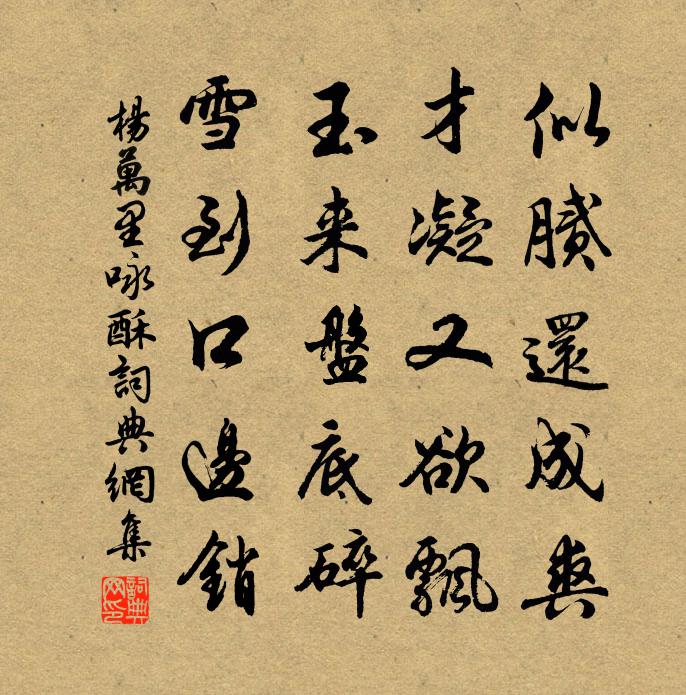 似膩還成爽
才凝又欲飄
玉来盤底碎
雪到口邊銷
楊萬里咏酥詞典網集
詞典网印